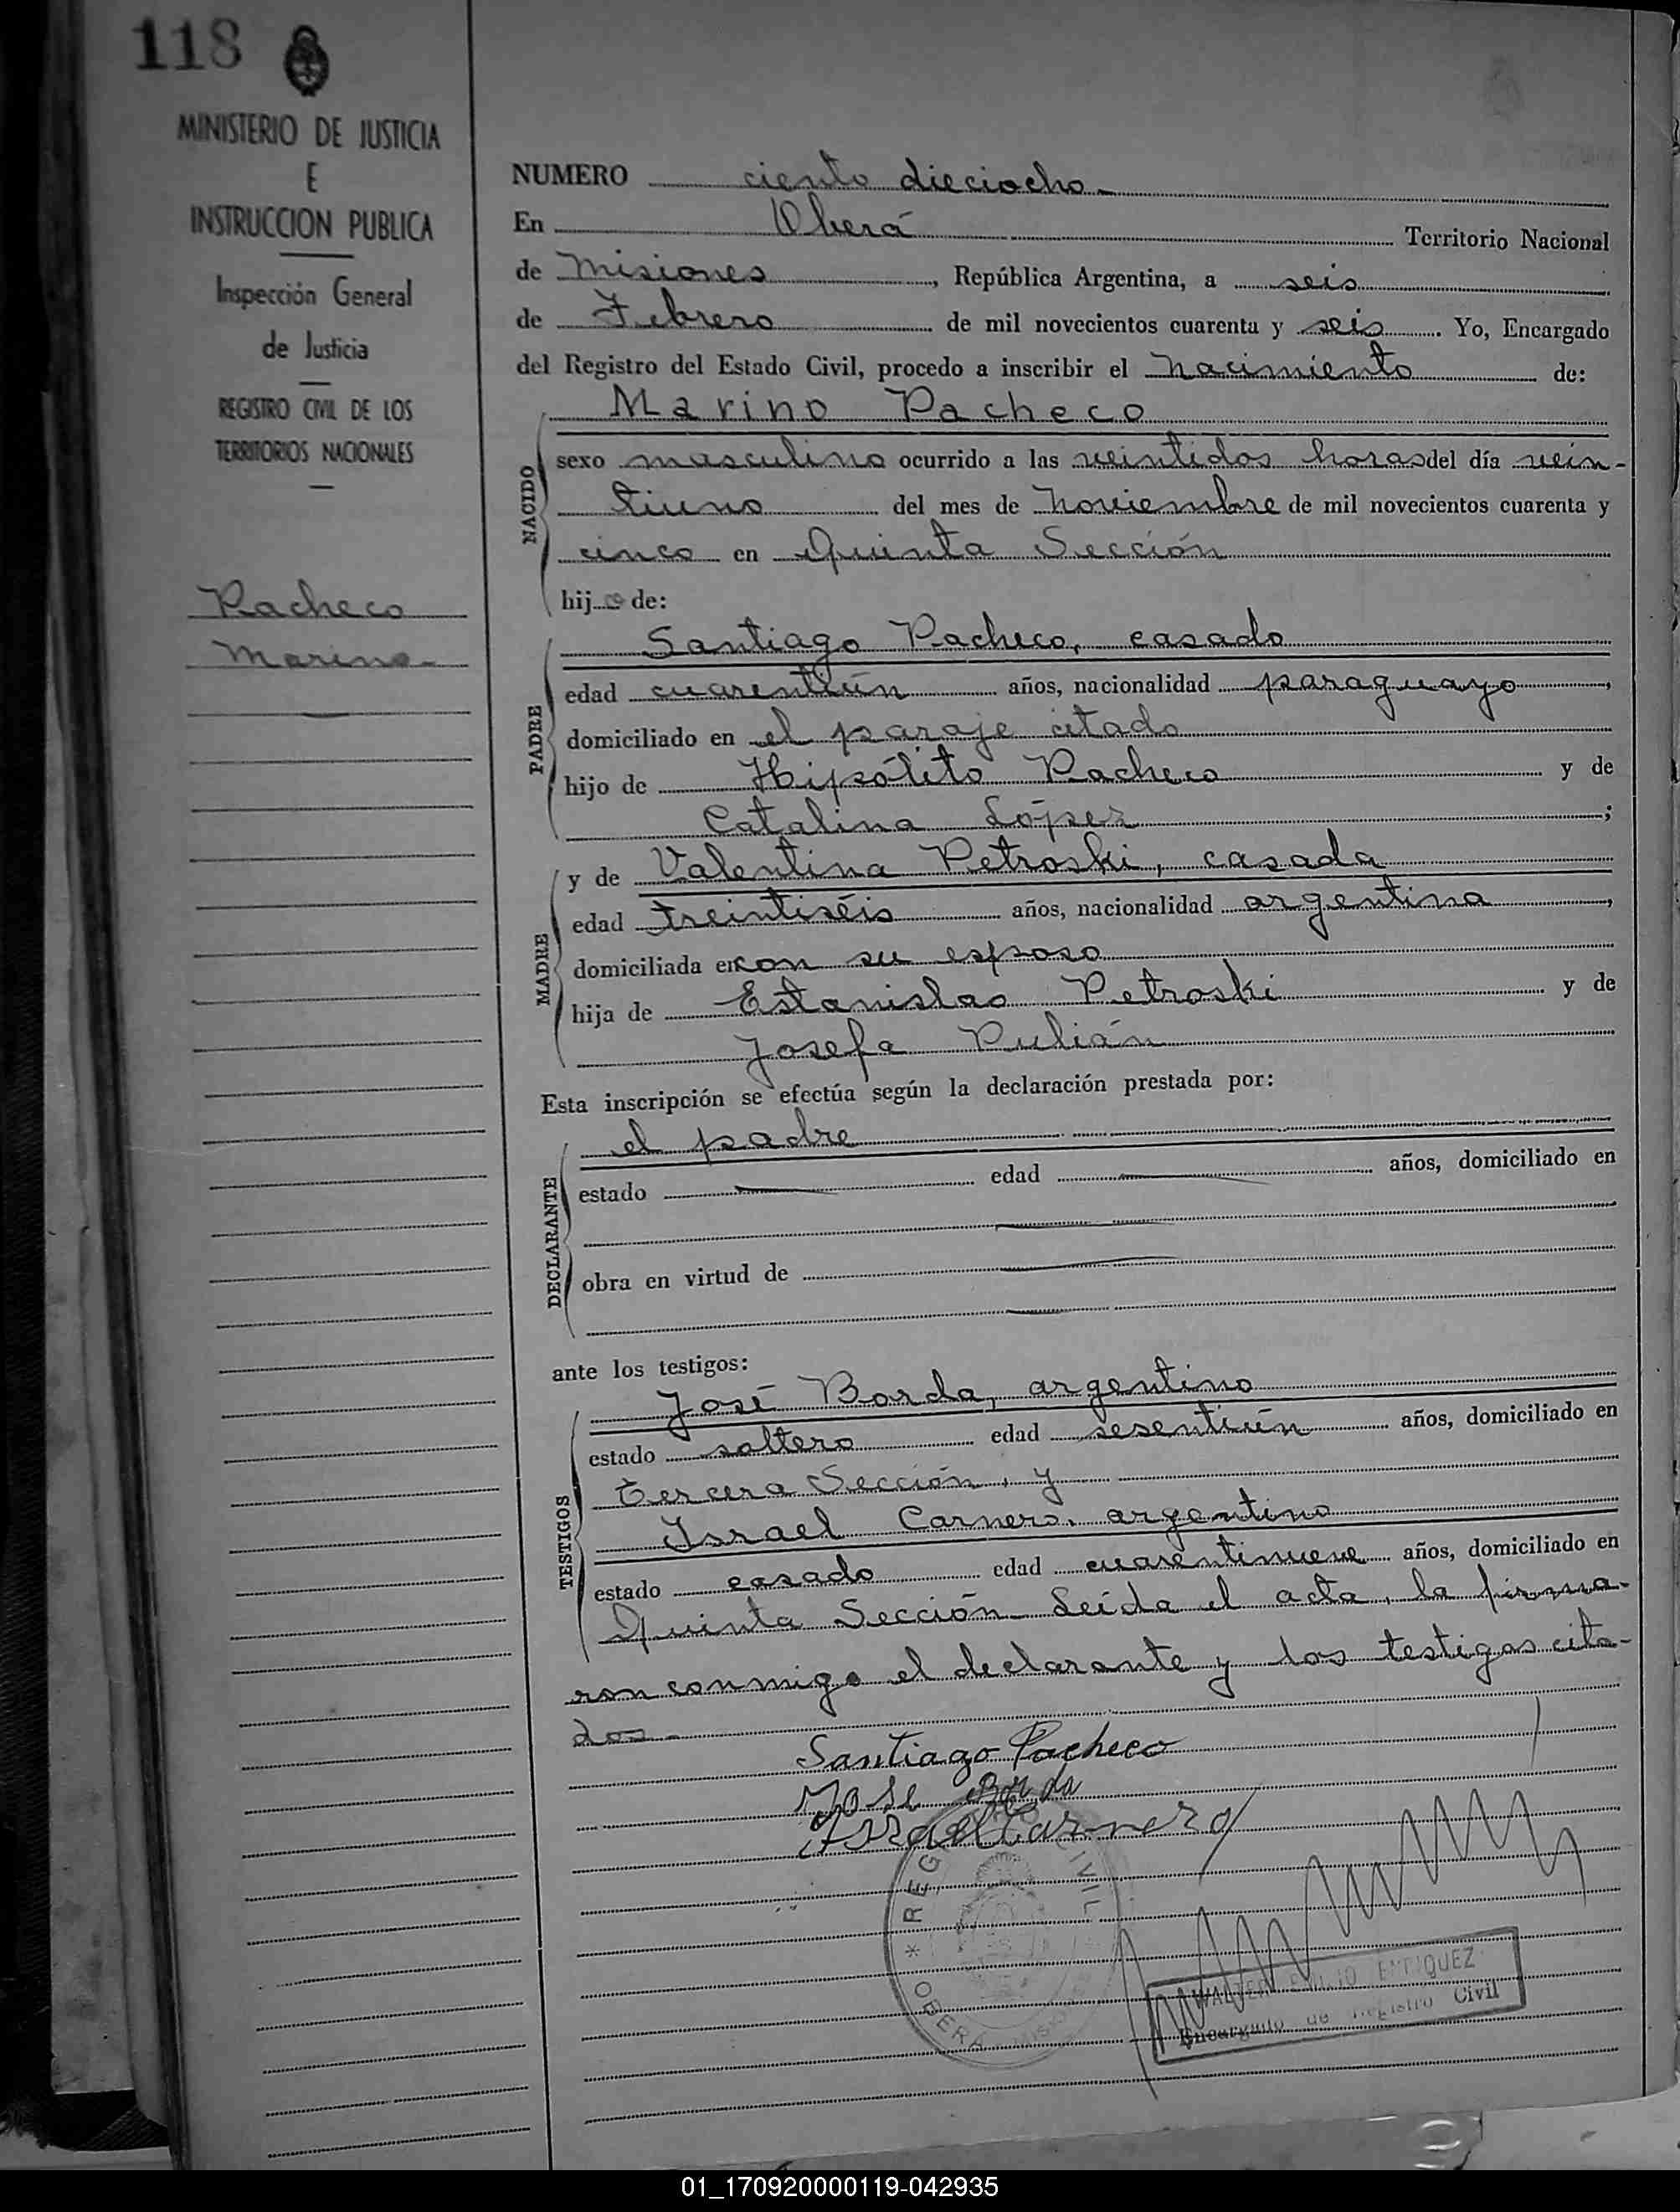 118
MINISTERIO DE JUSTICIA
E
INSTRUCCION PUBLICA
Inspección General
de Justicia
REGISTRO CIVIL DE LOS
TERRITORIOS NACIONALES
Pacheco
Marino
NUMERO ciento dieciocho
En Oberá Territorio Nacional
de Misiones, República Argentina, a seis
de Febrero de mil novecientos cuarenta y seis. Yo, Encargado
del Registro del Estado Civil, procedo a inscribir el nacimiento de:
NACIDO
Marino Pacheco
sexo masculino ocurrido a las veintidos horas del día vein-
tiuno del mes de noviembre de mil novecientos cuarenta y
cinco en Quinta Sección
hijo de:
PADRE
Santiago Pacheco, casado
edad cuarentiún años, nacionalidad paraguayo,
domiciliado en el paraje citado
hijo de Hipólito Pacheco y de
Catalina López;
MADRE
y de Valentina Petroski, casada
edad treintiséis años, nacionalidad argentina,
domiciliada en con su esposo
hija de Estanislao Petroski y de
Josefa Pulián
Esta inscripción se efectúa según la declaración prestada por:
DECLARANTE
el padre
estado edad años, domiciliado en
obra en virtud de
ante los testigos:
TESTIGOS
José Borda, argentino
estado soltero edad sesentiún años, domiciliado en
Tercera Sección, y
Israel Carnero, argentino
estado casado edad cuarentinueve años, domiciliado en
Quinta Sección. Leída el acta, la firma-
ron conmigo el declarante y los testigos cita-
dos.-
Santiago Pacheco
Jose Borda
Israel Carnero
REG CIVIL
* OBERA
WALTER EMILIO ENRIQUEZ
Encargado de Registro Civil
01_170920000119-042935